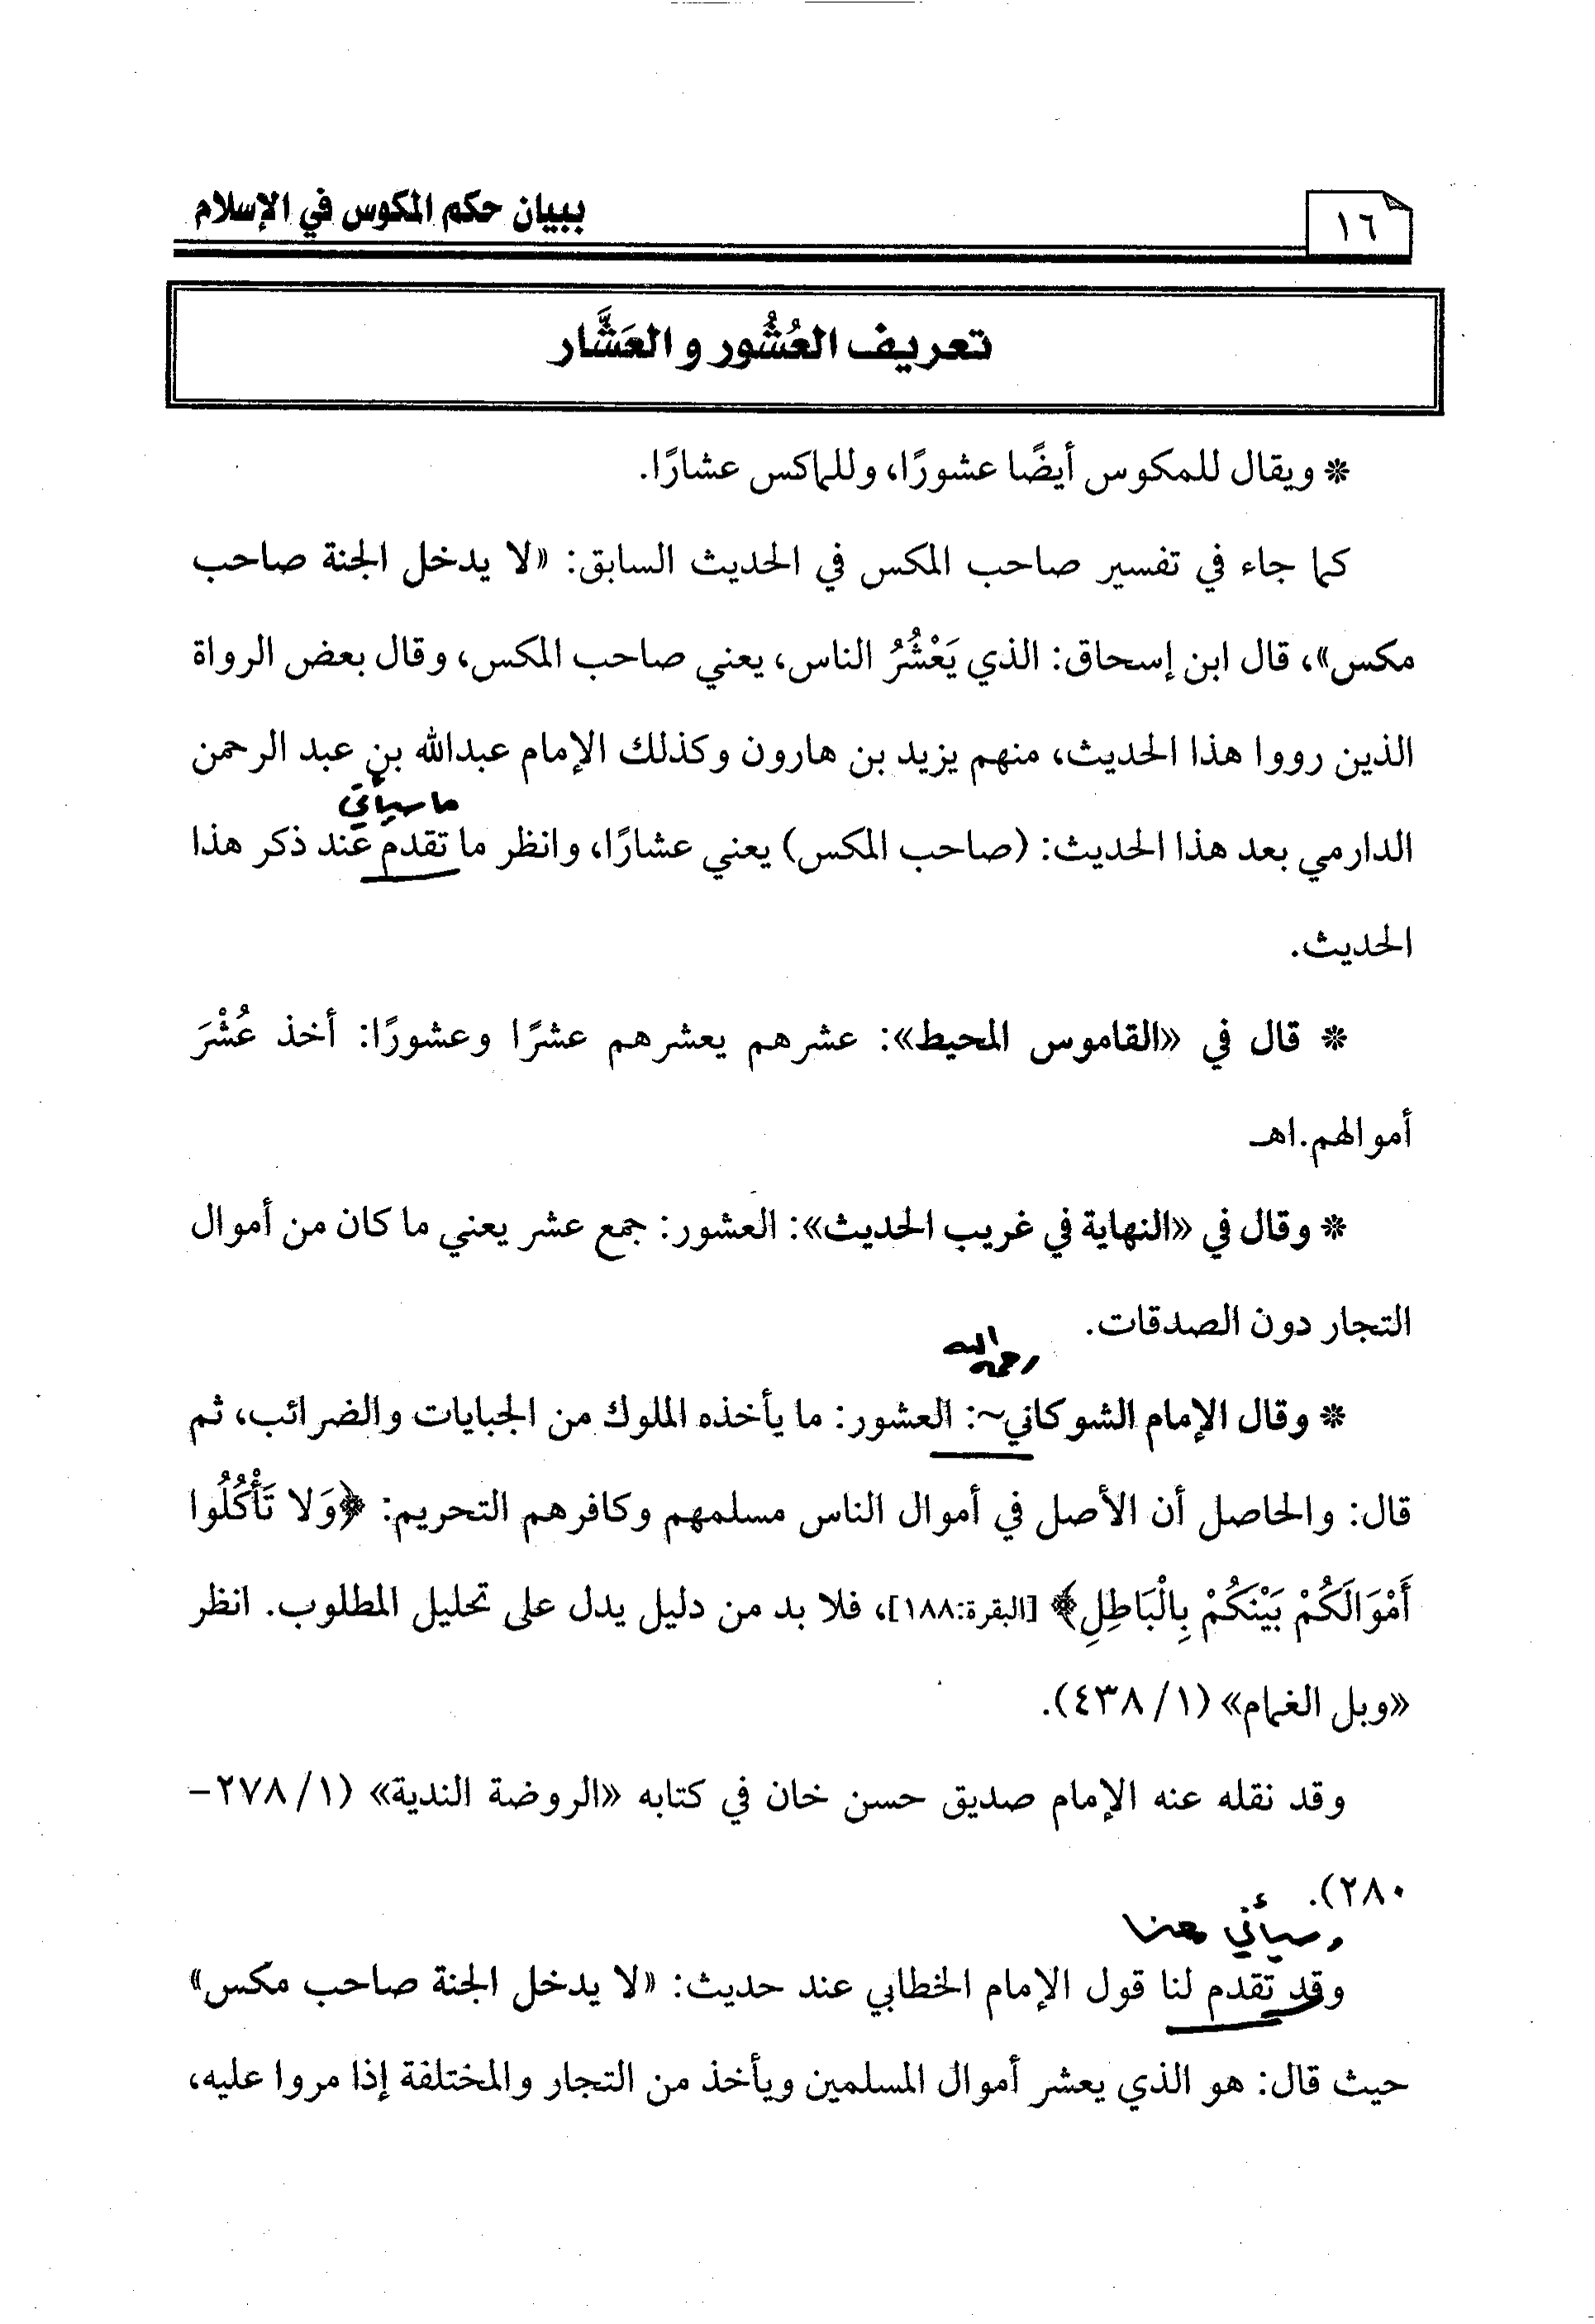 ١٦
ببيان حكم المكوس في الإسلام
تعريف العُشُور والعَشَّار
* ويقال للمكوس أيضًا عشورًا، وللماكس عشارًا.
كما جاء في تفسير صاحب المكس في الحديث السابق: «لا يدخل الجنة صاحب
مكس»، قال ابن إسحاق: الذي يَعْشُرُ الناس، يعني صاحب المكس، وقال بعض الرواة
الذين رووا هذا الحديث، منهم يزيد بن هارون وكذلك الإمام عبدالله بن عبد الرحمن
ما سيأتي
الدارمي بعد هذا الحديث: (صاحب المكس) يعني عشارًا، وانظر ما تقدم عند ذكر هذا
الحديث.
* قال في «القاموس المحيط»: عشرهم يعشرهم عشرًا وعشورًا: أخذ عُشْرَ
أموالهم.اهـ
* وقال في «النهاية في غريب الحديث»: العشور: جمع عشر يعني ما كان من أموال
التجار دون الصدقات.
رحمه الله
* وقال الإمام الشوكاني~: العشور: ما يأخذه الملوك من الجبايات والضرائب، ثم
قال: والحاصل أن الأصل في أموال الناس مسلمهم وكافرهم التحريم: ﴿وَلا تَأْكُلُوا
أَمْوَالَكُمْ بَيْنَكُمْ بِالْبَاطِلِ﴾ [البقرة:١٨٨]، فلا بد من دليل يدل على تحليل المطلوب. انظر
«وبل الغمام» (١/ ٤٣٨).
وقد نقله عنه الإمام صديق حسن خان في كتابه «الروضة الندية» (١/ ٢٧٨-
٢٨٠).
وسيأتي معنا
وقد تقدم لنا قول الإمام الخطابي عند حديث: «لا يدخل الجنة صاحب مكس»
حيث قال: هو الذي يعشر أموال المسلمين ويأخذ من التجار والمختلفة إذا مروا عليه،